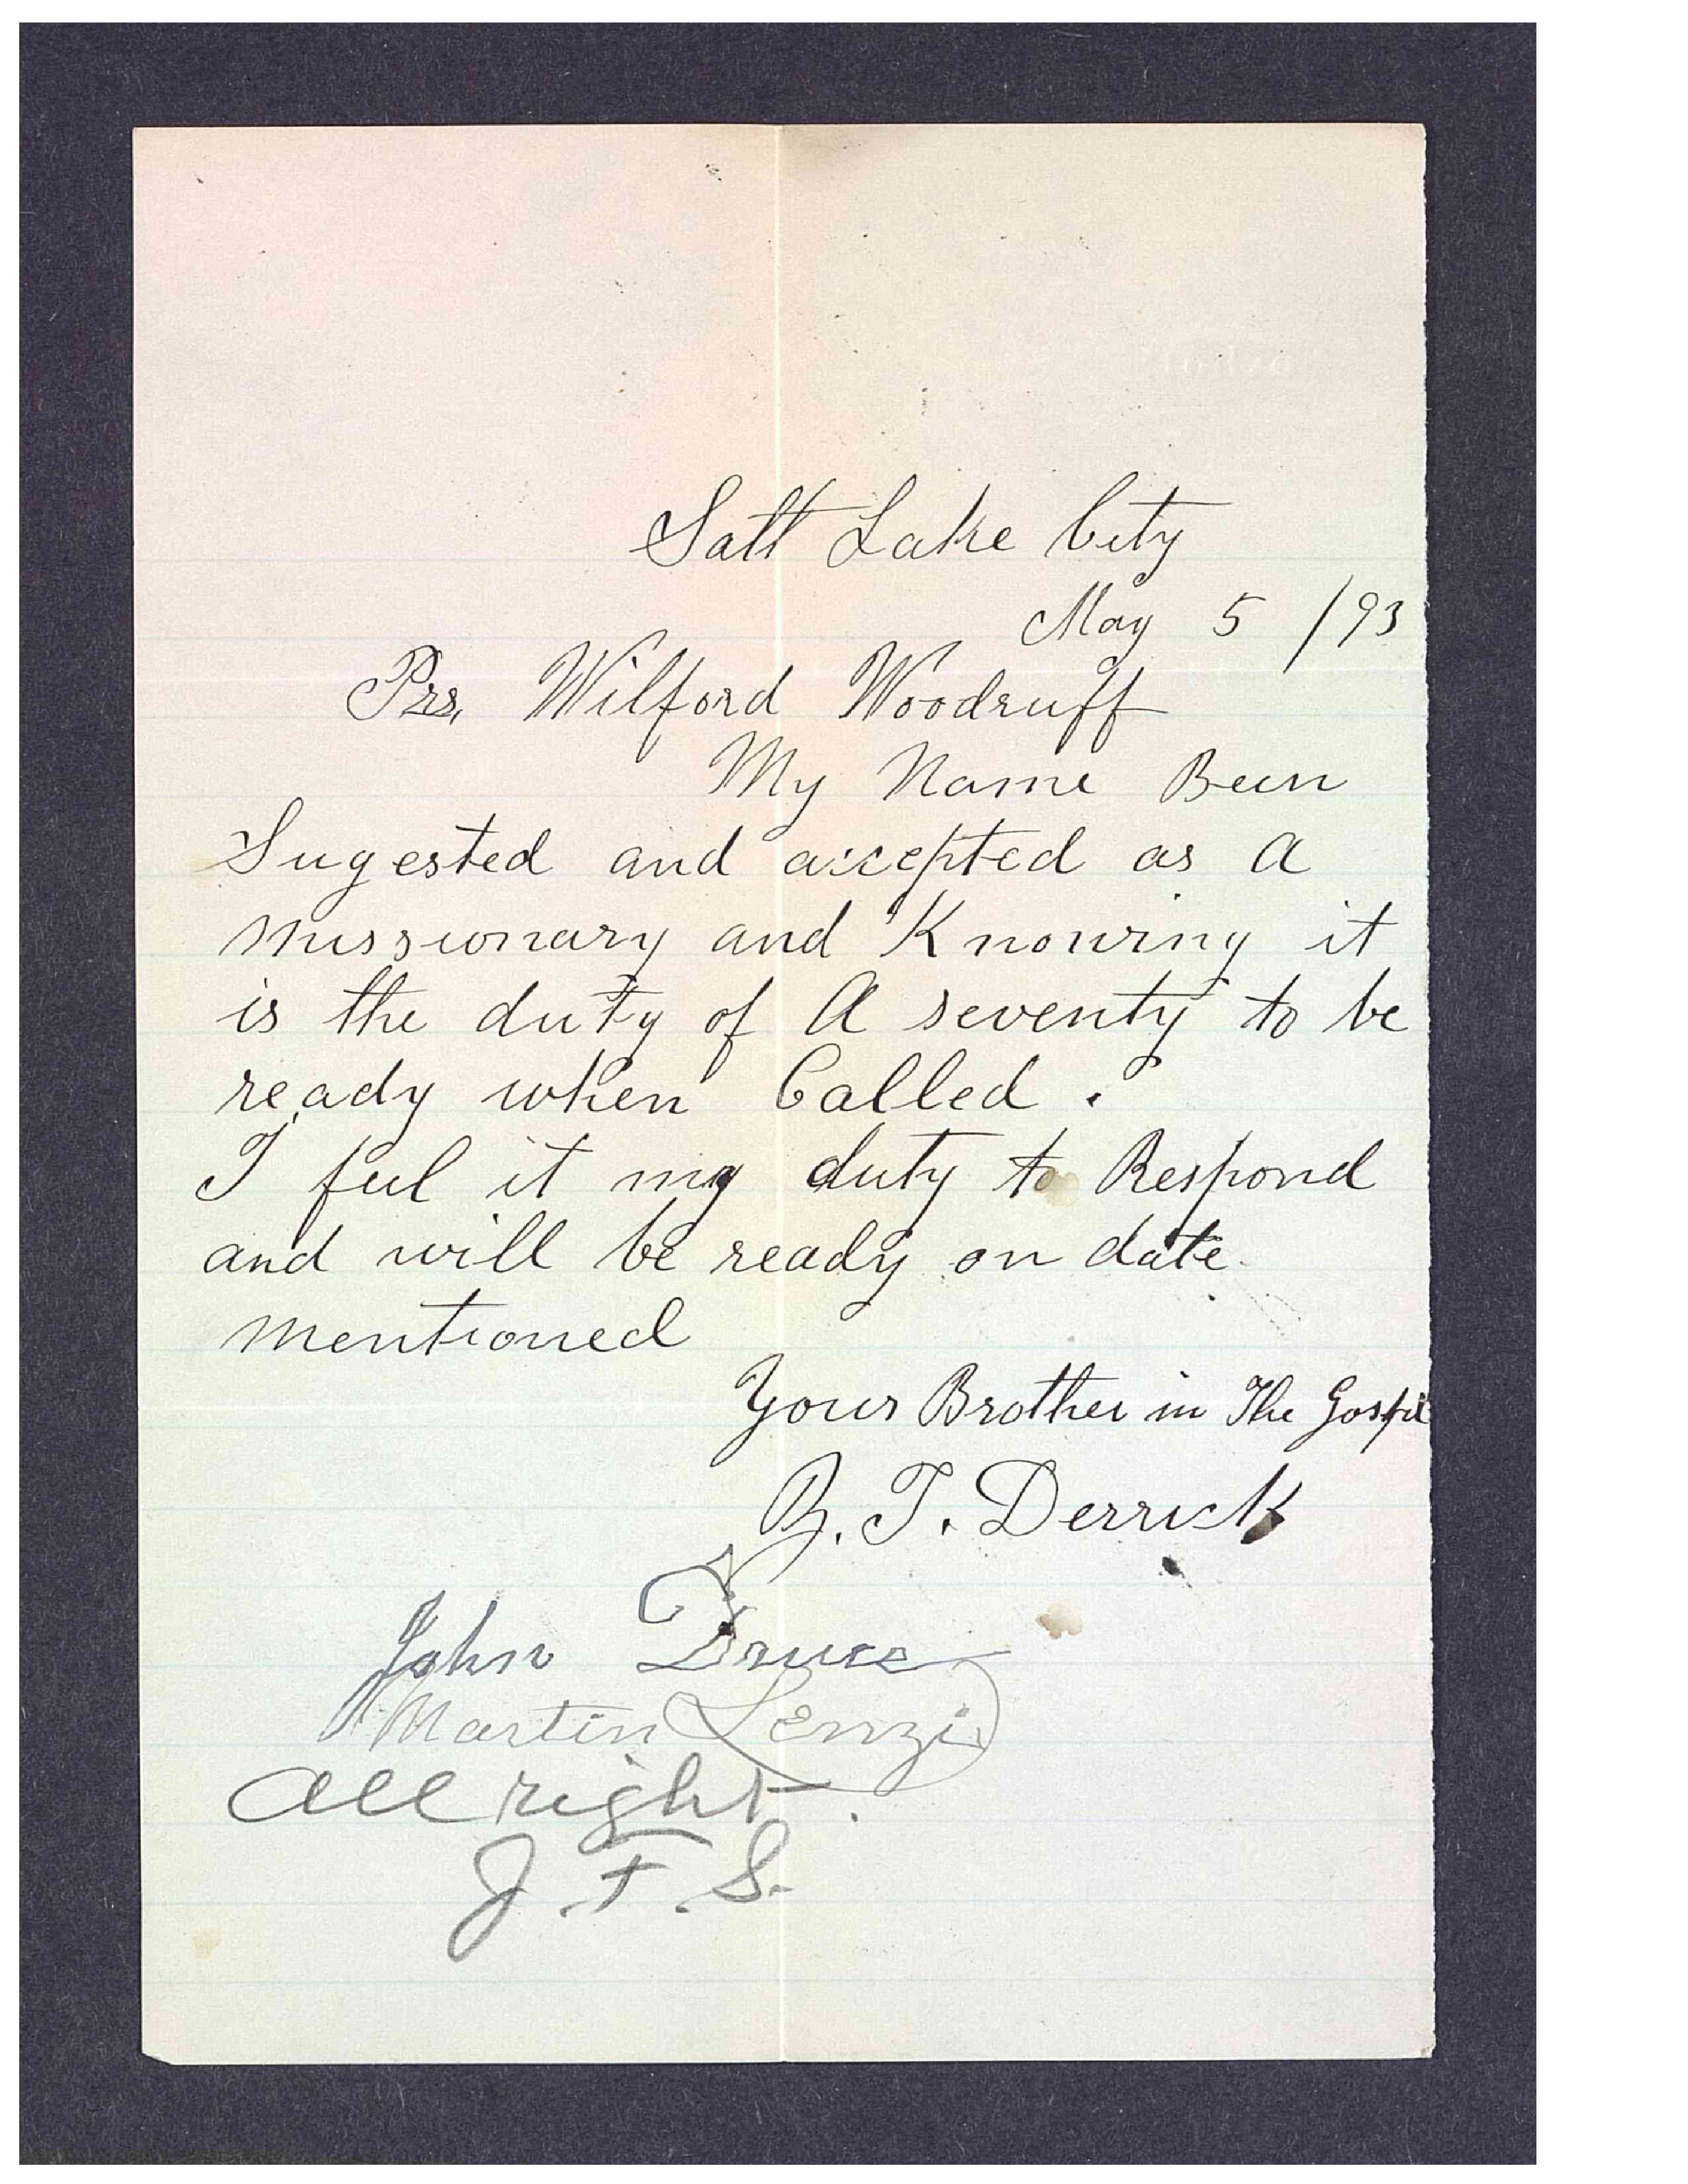 Salt Lake City
May 5 /93
Prs, Wilford Woodruff
My Name Been
Sugested and accepted as A
missionary and Knowing it
is the duty of A seventy to be
ready when Called.
I feel it my duty to Respond
and will be ready on date
mentioned
Your Brother in The Gospel
Z. T. Derrick
John Druce
Martin Lenzi
all right.
J. F. S.